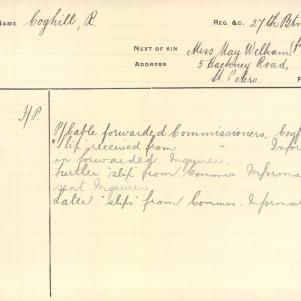 NAME Coghill, R REG. &C. 27th Btn
NEXT OF KIN Miss May Welham
ADDRESS 5 Hackney Road,
St Peters.
I/P
P/Cable forwarded Commissioners. Conf
"Slip" received from " Infor
in forwarded Inquirer.
Further "slip" from Commis Informa
sent Inquirer.
Later "slips" from Commis. Informat